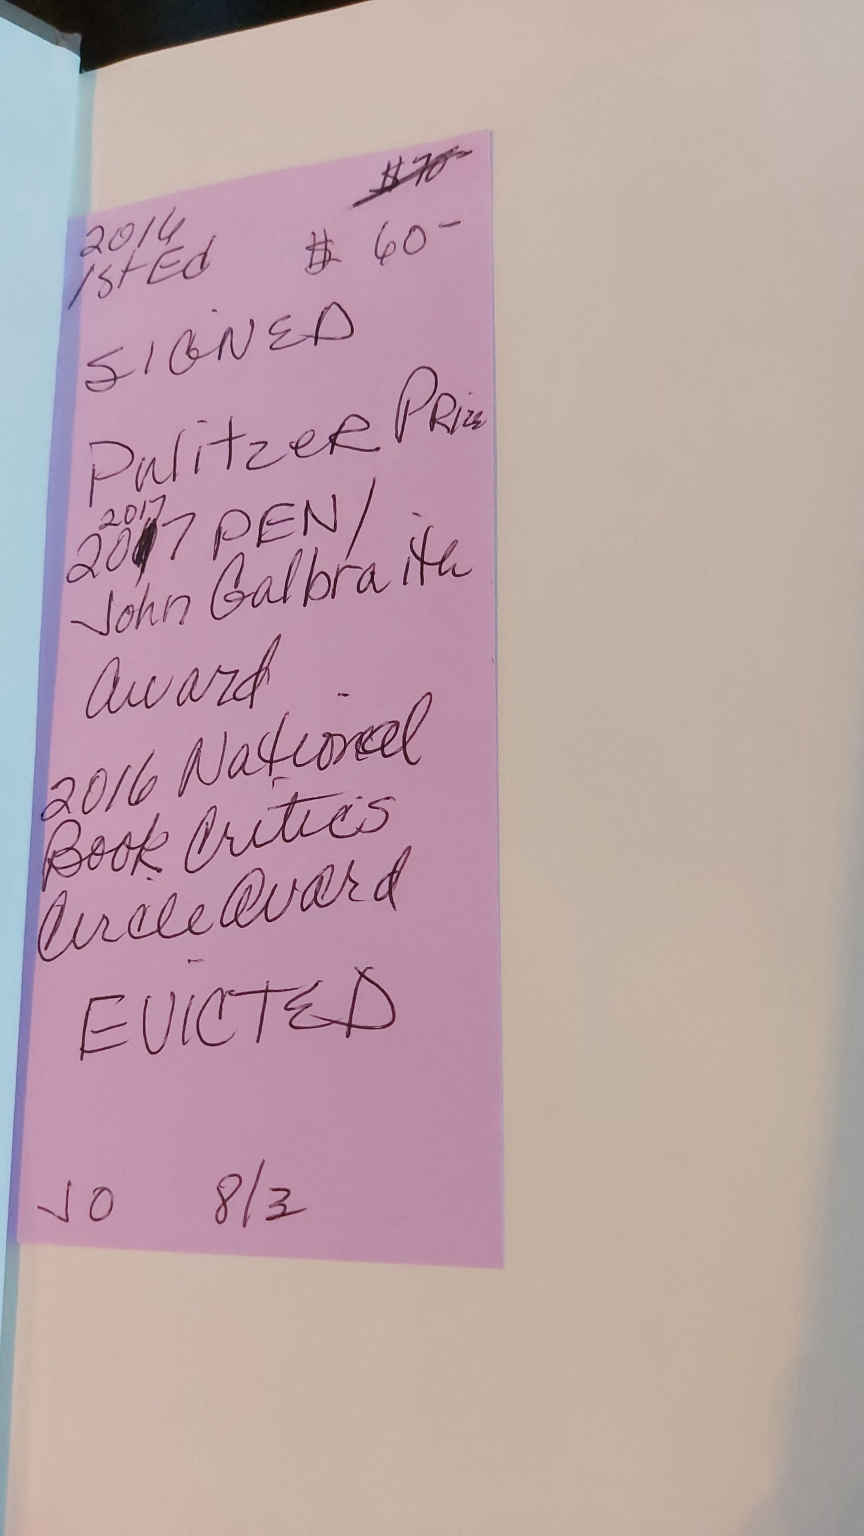 $70-
2016
1st Ed $ 60-
SIGNED
Pulitzer Prize
2017
2017 PEN/
John Galbraith
Award
2016 National
Book Critics
Circle Award
EVICTED
JO 8/3